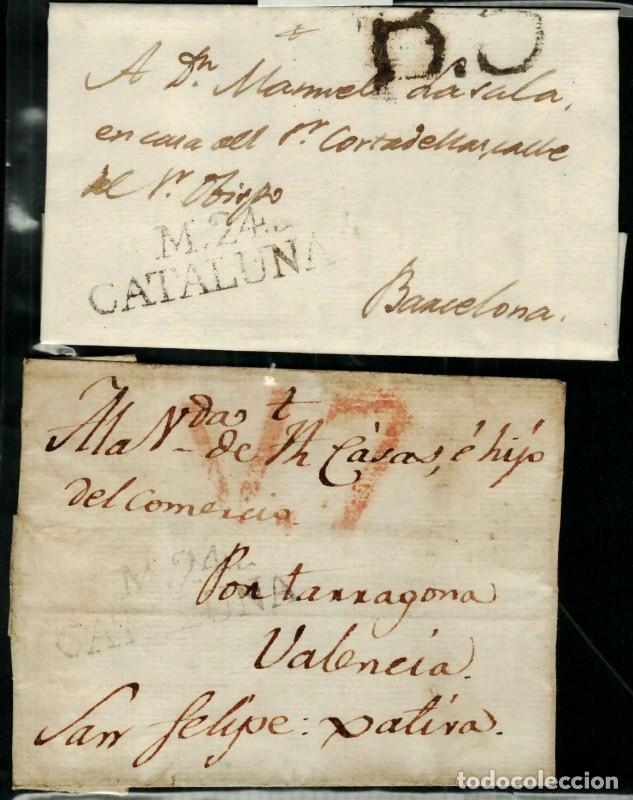 A Dn. Manuel Lasala,
en casa del Sr. Cortadellas, calle
del Sr. Obispo
M.24.
CATALUÑA
Barcelona.
V7
A la Vda. de Casas, é hijo
del Comercio
M.24
CATALUÑA
Por tarragona
Valencia.
San felipe: xativa.
todocoleccion